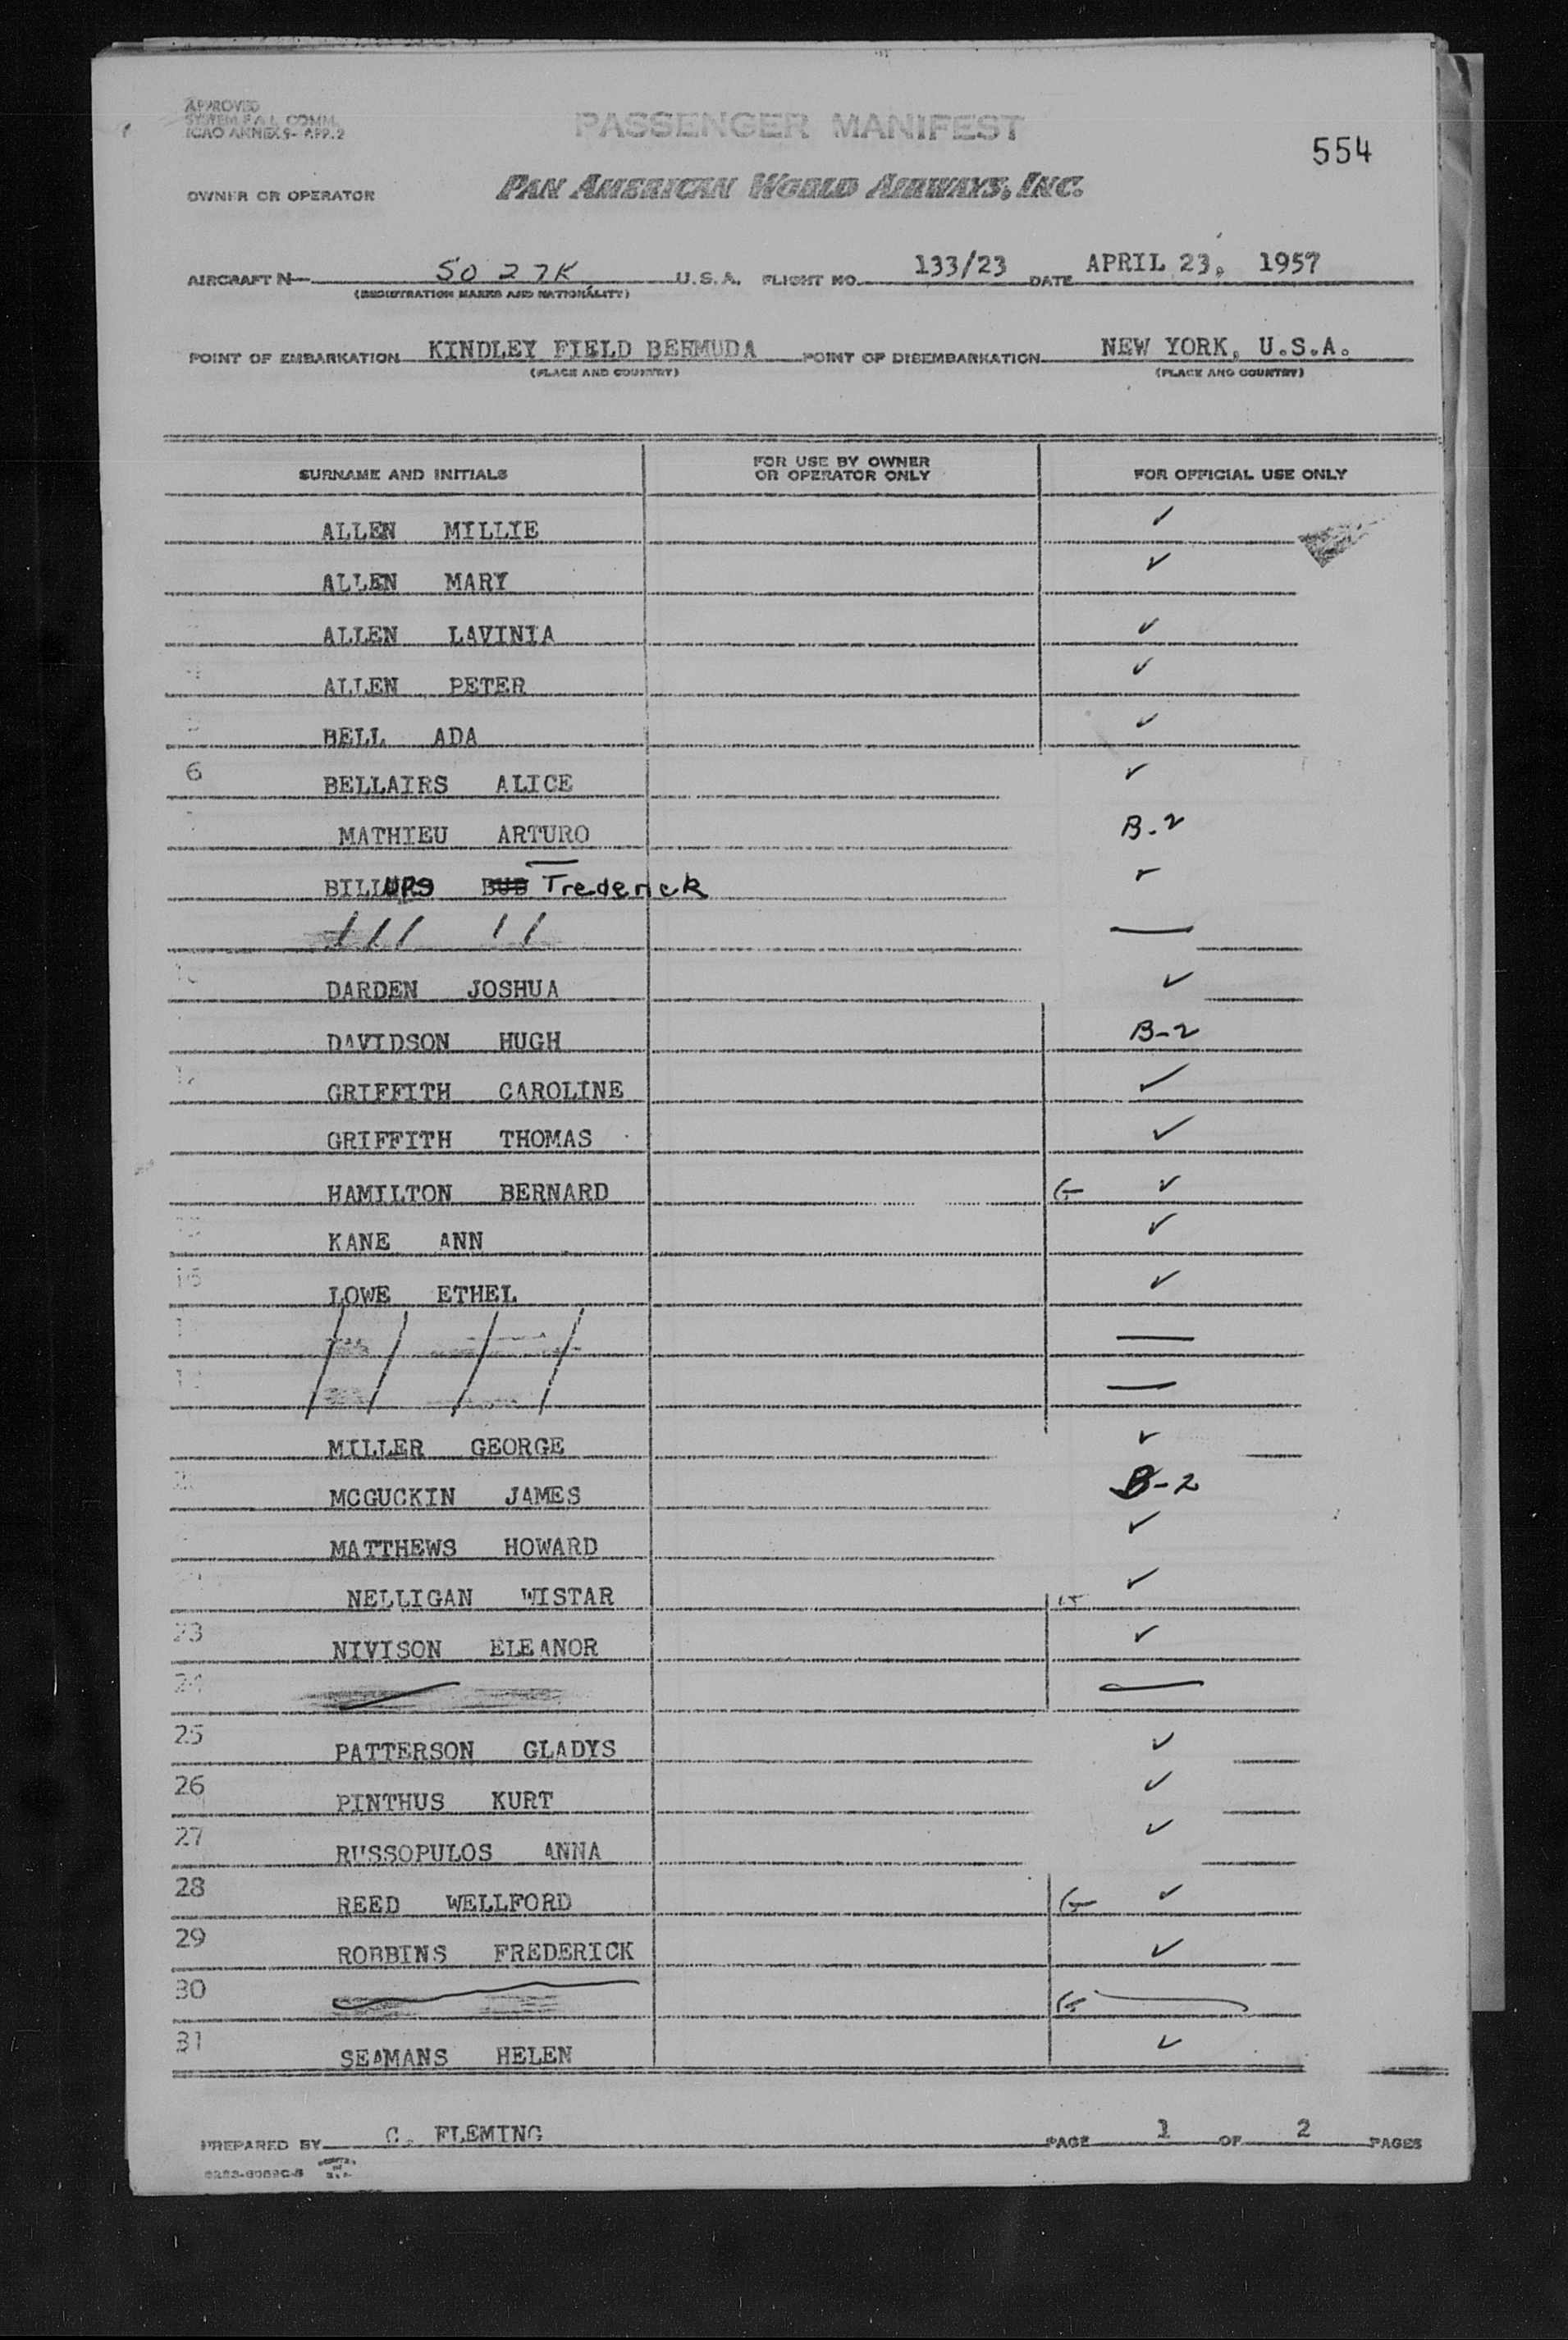 APPROVED
SYSTEM F.A.L. COMM.
ICAO ANNEX 9- APP.2
PASSENGER MANIFEST
554
OWNER OR OPERATOR PAN AMERICAN WORLD AIRWAYS, INC.
AIRCRAFT N 5027K U.S.A. FLIGHT NO. 133/23 DATE APRIL 23, 1957
(REGISTRATION MARKS AND NATIONALITY)
POINT OF EMBARKATION KINDLEY FIELD BERMUDA POINT OF DISEMBARKATION NEW YORK, U.S.A.
(PLACE AND COUNTRY) (PLACE AND COUNTRY)
SURNAME AND INITIALS FOR USE BY OWNER OR OPERATOR ONLY FOR OFFICIAL USE ONLY
ALLEN MILLIE ✓
ALLEN MARY ✓
ALLEN LAVINIA ✓
ALLEN PETER ✓
BELL ADA ✓
6 BELLAIRS ALICE ✓
MATHIEU ARTURO B-2
BILLUPS BUB Frederick ✓
DARDEN JOSHUA ✓
DAVIDSON HUGH B-2
12 GRIFFITH CAROLINE ✓
GRIFFITH THOMAS ✓
HAMILTON BERNARD G ✓
KANE ANN ✓
16 LOWE ETHEL ✓
MILLER GEORGE ✓
MCGUCKIN JAMES B-2
MATTHEWS HOWARD ✓
NELLIGAN WISTAR ✓
23 NIVISON ELEANOR ✓
24
25 PATTERSON GLADYS ✓
26 PINTHUS KURT ✓
27 RUSSOPULOS ANNA ✓
28 REED WELLFORD G ✓
29 ROBBINS FREDERICK ✓
30 G
31 SEAMANS HELEN ✓
PREPARED BY C. FLEMING PAGE 1 OF 2 PAGES